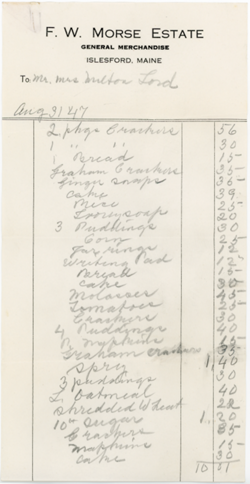 F. W. MORSE ESTATE
GENERAL MERCHANDISE
ISLESFORD, MAINE
To Mr. Mrs Milton Lord
Aug 31 47
2 pkgs Crackers 56
1 " " 30
1 Bread 15
Graham Crackers 35
Ginger snaps 35
Cake 39
25
soap 20
3 Puddlings 30
Corn 25
Jar rings 12
Writing Pad 12
Bread 15
Cake 30
Molasses 45
Tomatoes 25
Crackers 30
4 Puddings 40
Napkins
Graham crackers 35
Spry 1
3 puddings 30
L. Oatmeal 40
Shredded Wheat 22
10# sugar 1
Crackers 35
Napkins 15
Cake 30
10 11